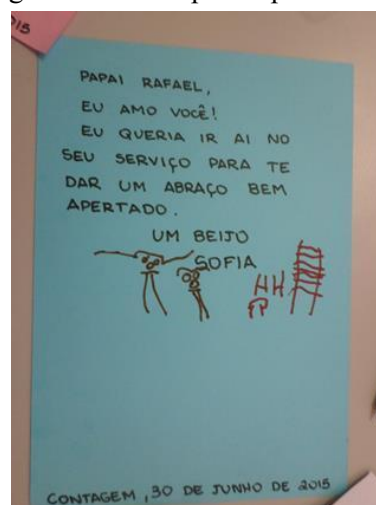 015
PAPAI RAFAEL,
EU AMO VOCÊ!
EU QUERIA IR AI NO
SEU SERVIÇO PARA TE
DAR UM ABRAÇO BEM
APERTADO.
UM BEIJO
SOFIA
CONTAGEM, 30 DE JUNHO DE 2015